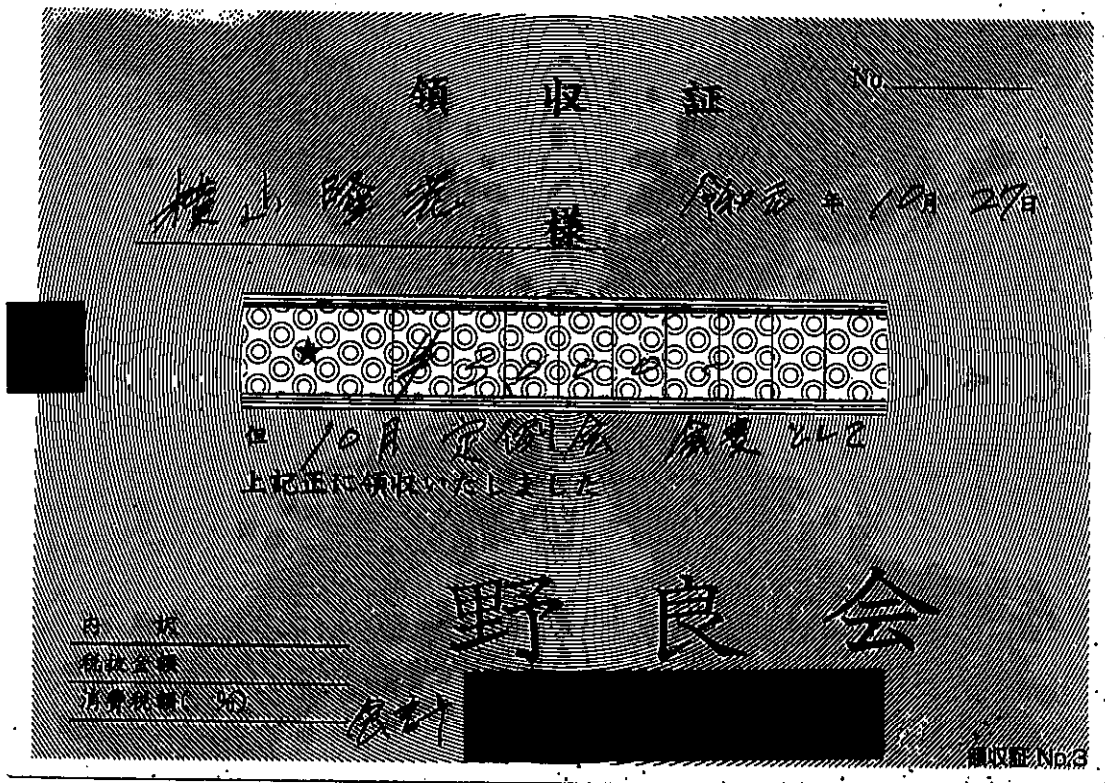 領収証
No.
様 令和元年10月27日
★ ¥5,000-
但 10月 定例会 会費として
上記正に領収いたしました
野良会
内訳
税抜金額
消費税額( %)
会計
領収証 No.3